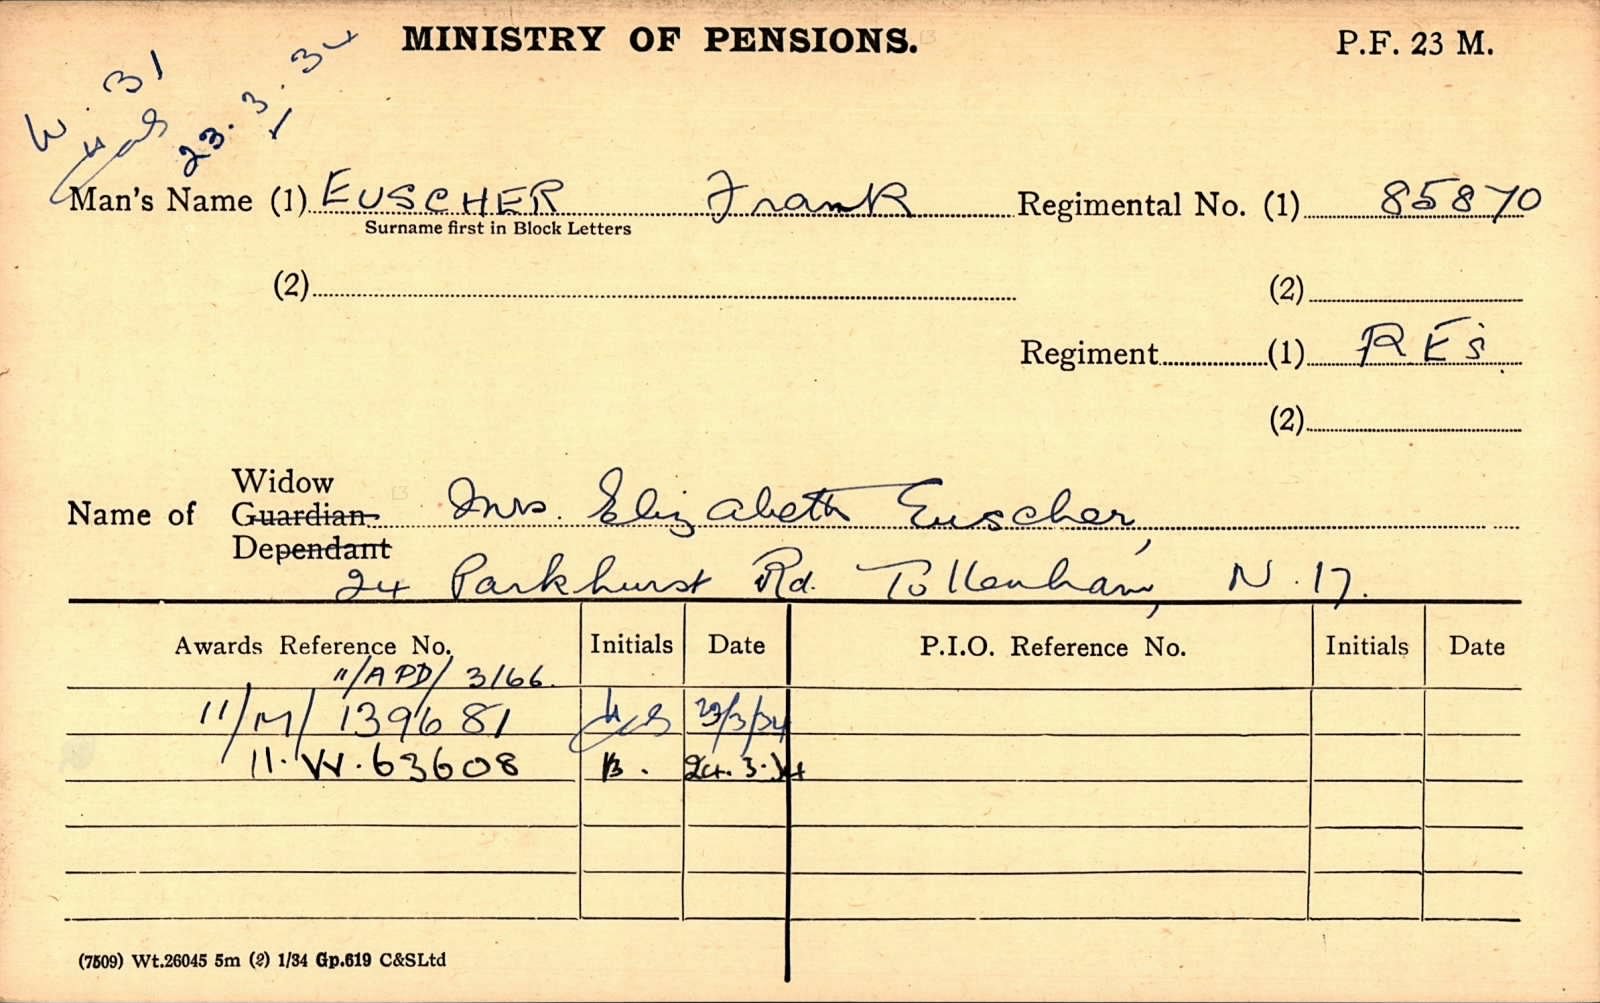 MINISTRY OF PENSIONS.
P.F. 23 M.
W. 31
23.3.34
Man's Name (1) EUSCHER Frank Regimental No. (1) 85870
Surname first in Block Letters
(2) (2)
Regiment (1) R E's
(2)
Widow
Name of Guardian Mrs. Elizabeth Euscher,
Dependant
24 Parkhurst Rd. Tottenham, N.17.
Awards Reference No. Initials Date P.I.O. Reference No. Initials Date
11/APD/3166.
11/M/139681 23/3/34
11.W.63608 B. 24.3.34
(7509) Wt.26045 5m (2) 1/34 Gp.619 C&SLtd